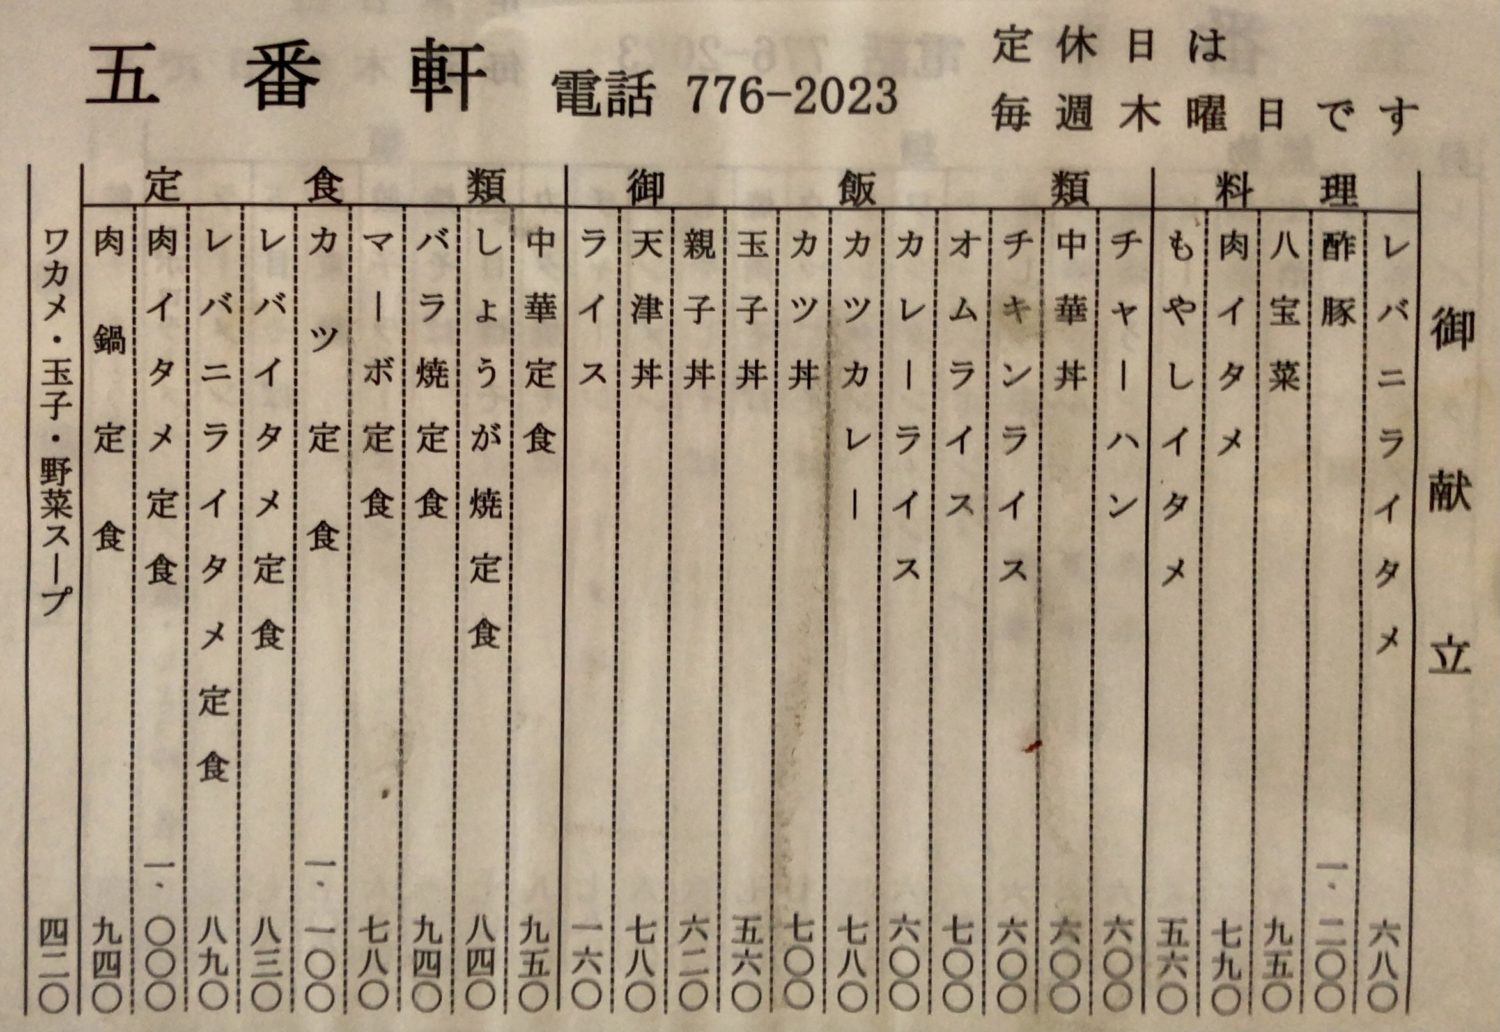 五番軒 電話 776-2023
定休日は
毎週木曜日です
御献立
料理
レバニライタメ 六八〇
酢豚 一.二〇〇
八宝菜 九五〇
肉イタメ 七九〇
もやしイタメ 五六〇
御飯類
チャーハン 六〇〇
中華丼 六〇〇
チキンライス 六〇〇
オムライス 七〇〇
カレーライス 六〇〇
カツカレー 七八〇
カツ丼 七〇〇
玉子丼 五六〇
親子丼 六二〇
天津丼 七八〇
ライス 一六〇
定食類
中華定食 九五〇
しょうが焼定食 八四〇
バラ焼定食 九四〇
マーボ定食 七八〇
カツ定食 一.一〇〇
レバイタメ定食 八三〇
レバニライタメ定食 八九〇
肉イタメ定食 一.〇〇〇
肉鍋定食 九四〇
ワカメ・玉子・野菜スープ 四二〇